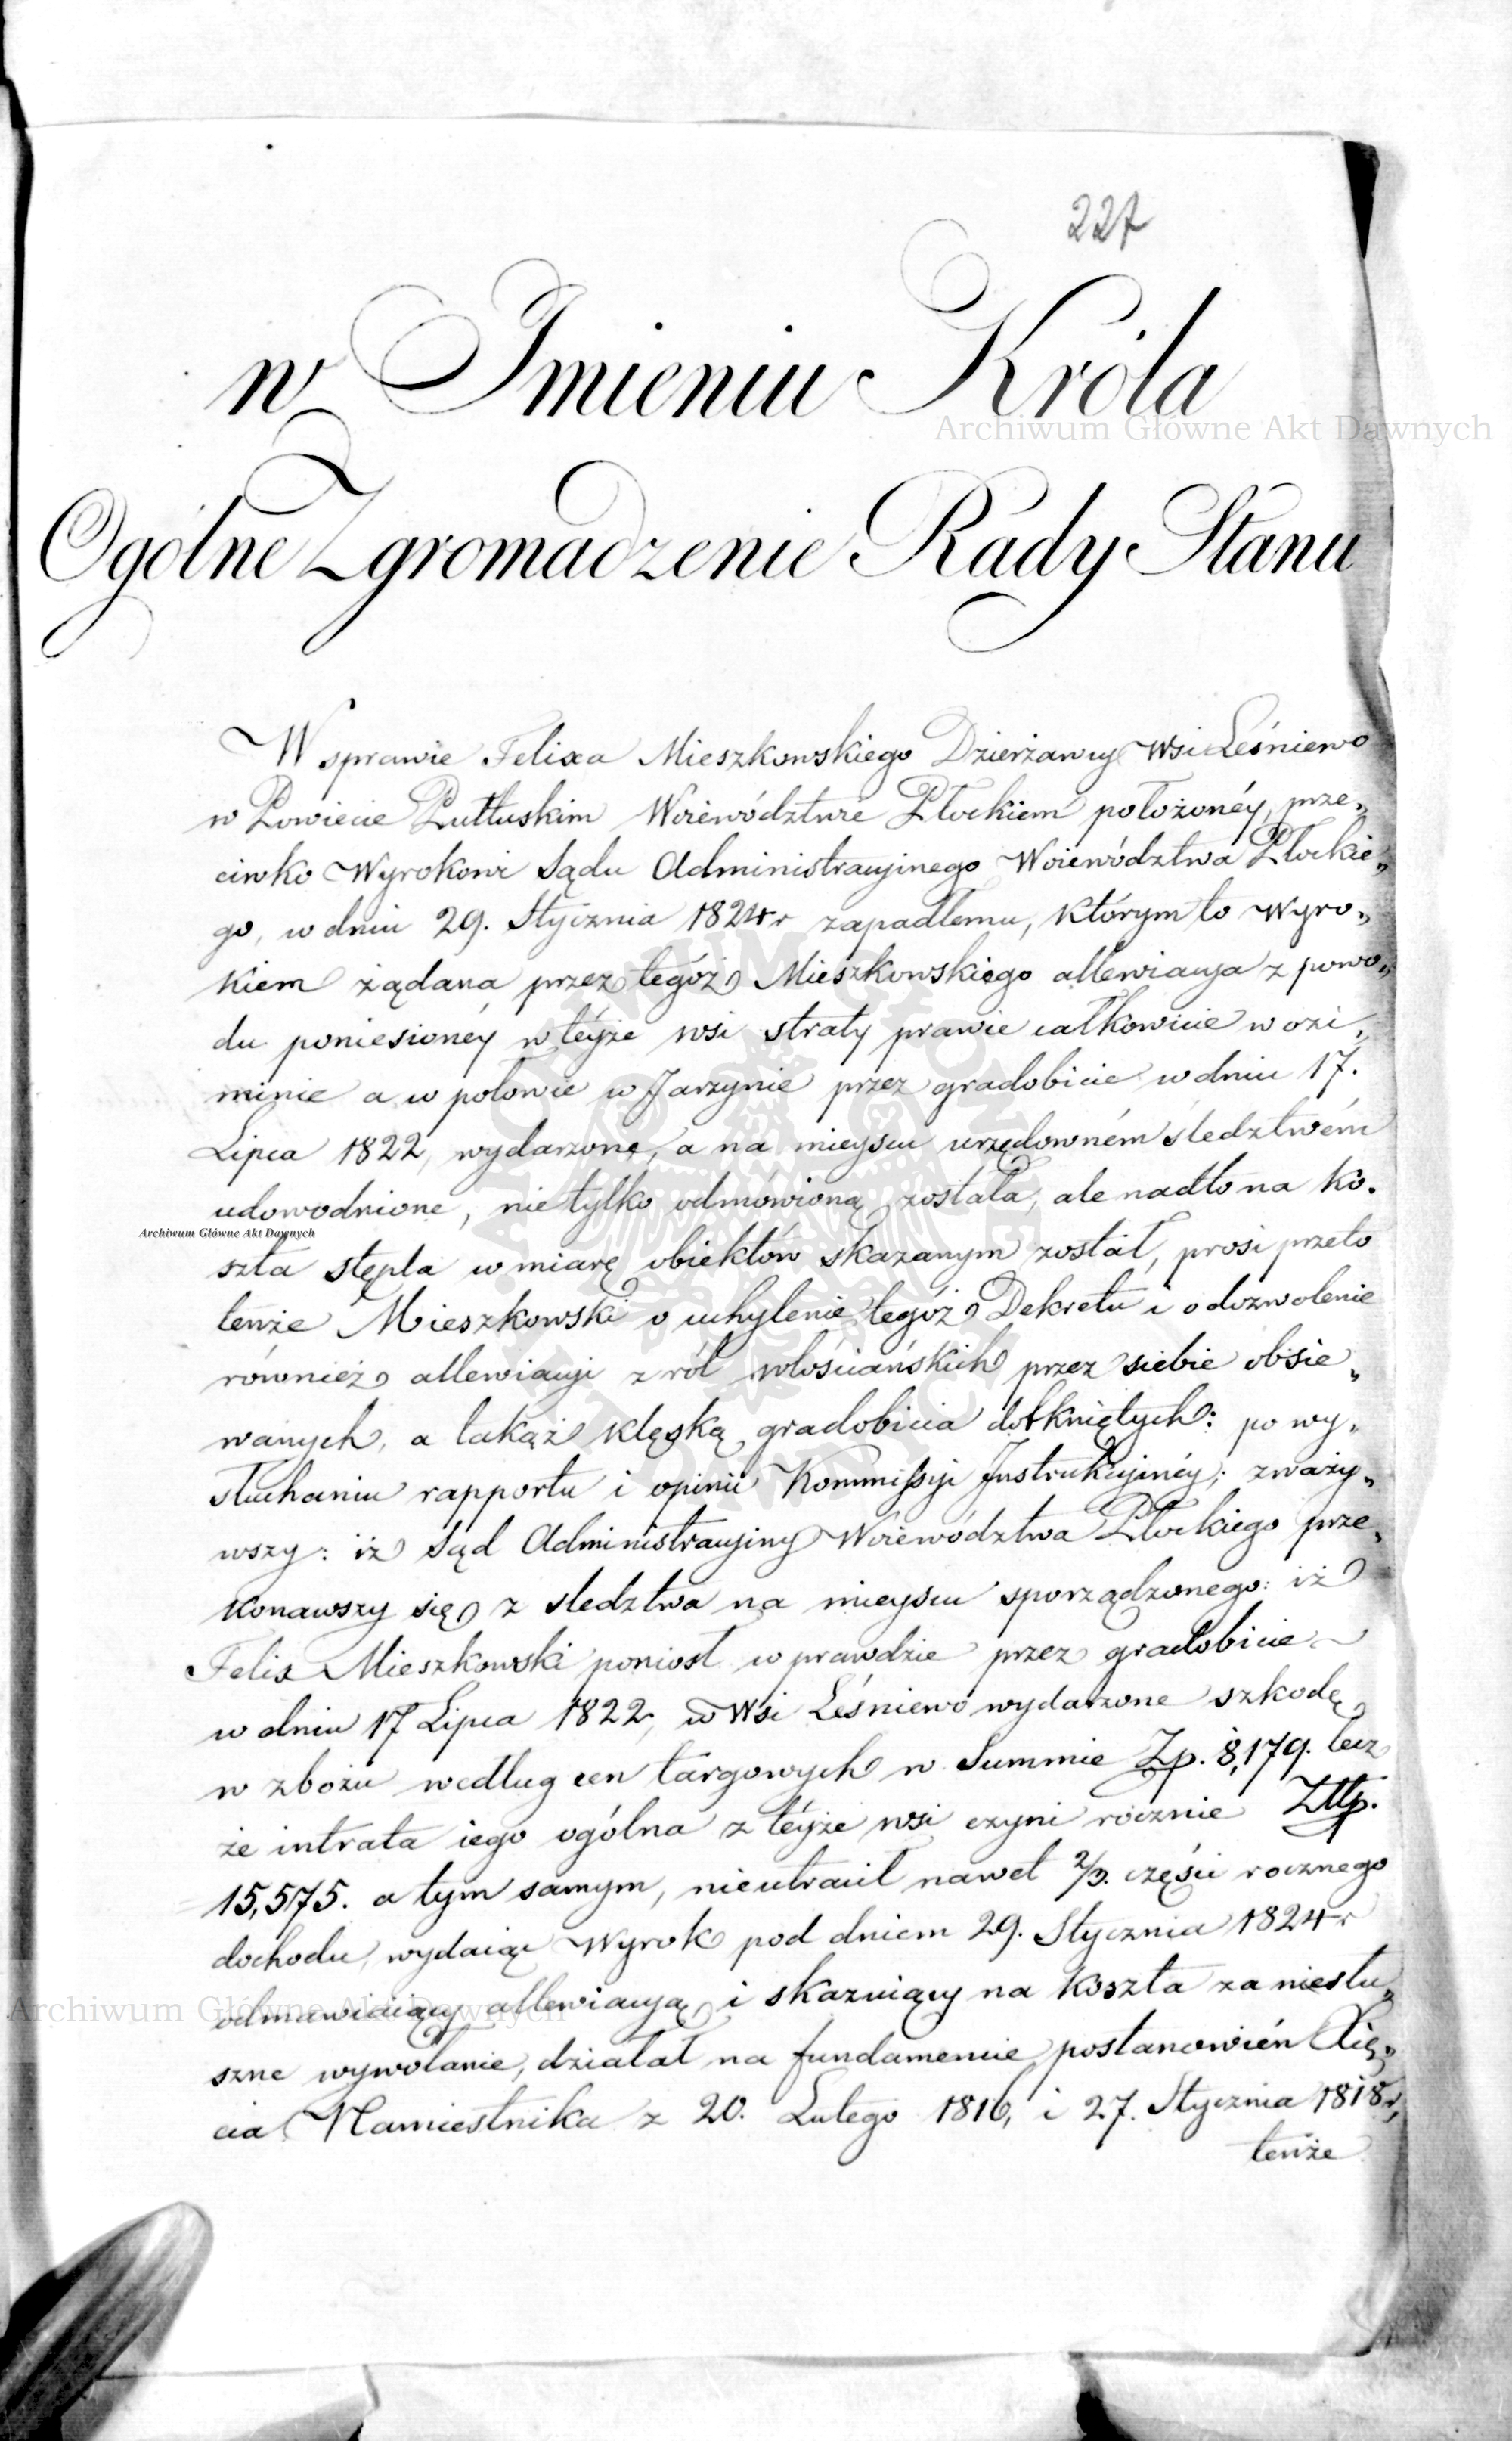 227
w Imieniu Króla
Archiwum Główne Akt Dawnych
Ogólne Zgromadzenie Rady Stanu
W sprawie Felixa Mieszkowskiego Dzierżawcy Wsi Leśniewo
w Powiecie Pułtuskim Woiewództwie Płockiem położonéy, prze„
ciwko Wyrokowi Sądu Administracyinego Woiewództwa Płockie„
go, w dniu 29. Stycznia 1824r zapadłemu, którym to Wyro„
kiem żądana przez tegóż Mieszkowskiego allewiacya z powo„
du poniesionéy w téyże wsi straty prawie całkowicie w ozi„
minie a w połowie w Jarzynie przez gradobicie w dniu 17.
Lipca 1822, wydarzone, a na mieyscu urzędowném śledztwém
udowodnione, nietylko odmówioną została, ale nadto na ko„
Archiwum Główne Akt Dawnych
szta stępla w miarę obiektów skazanym został, prosi przeto
tenże Mieszkowski o uchylenie tegóż Dekretu i o dozwolenie
również allewiacyi z ról włościańskich przez siebie obsie„
wanych, a takąż klęską gradobicia dotkniętych: po wy„
słuchaniu rapportu i opinii Kommissyi Instrukcyinéy; zważy„
wszy: iż Sąd Administracyiny Woiewództwa Płockiego prze„
konawszy się z sledztwa na mieyscu sporządzonego: iż
Felix Mieszkowski poniosł wprawdzie przez gradobicie
w dniu 17 Lipca 1822, w Wsi Leśniewo wydarzone szkodę
w zbożu według cen targowych w Summie Zp. 8,179. lecz
że intrata iego ogólna z téyże wsi czyni rocznie Złłp.
15,575. a tym samym, nieutracił nawet 2/3. części rocznego
dochodu, wydaiąc Wyrok pod dniem 29. Stycznia 1824r
odmawiaiący allewiacyą, i skazuiący na koszta za niesłu„
Archiwum Główne Akt Dawnych
szne wywołanie, działał na fundamencie postanowień Xię„
cia Namiestnika z 20. Lutego 1816, i 27. Stycznia 1818r,
tenże